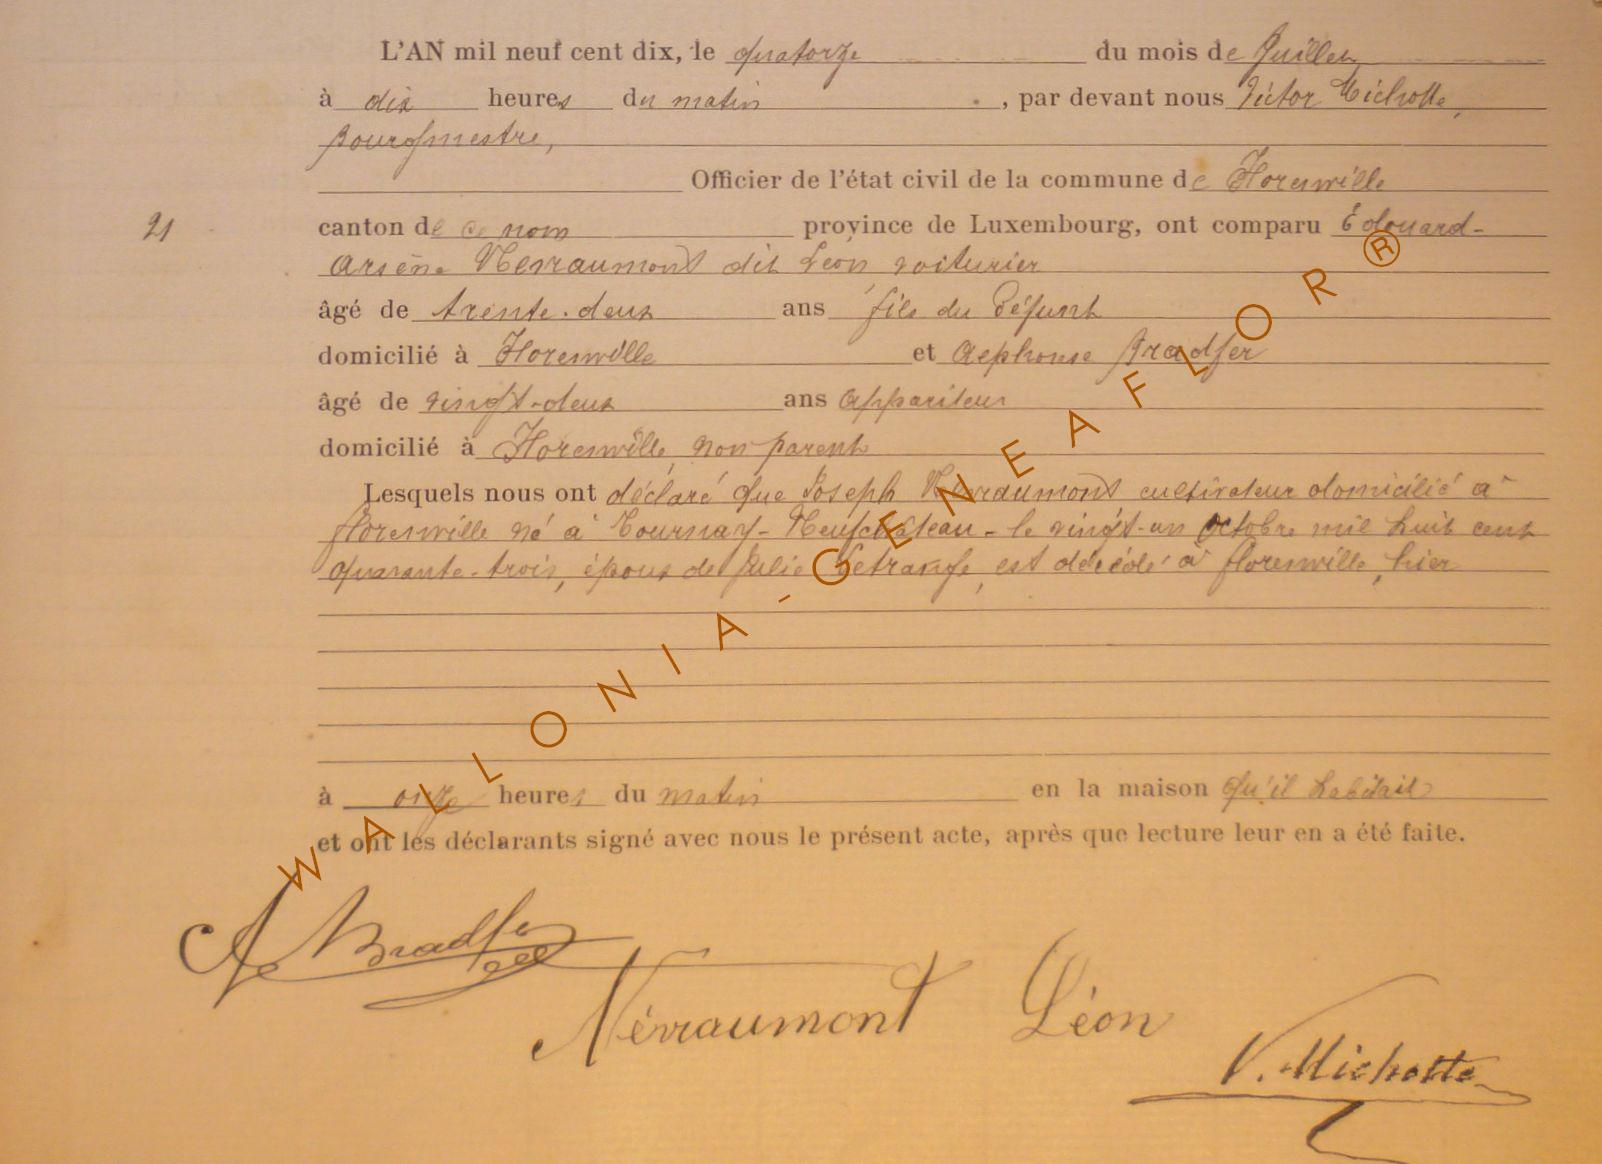 L'AN mil neuf cent dix, le quatorze du mois de Juillet
à dix heures du matin , par devant nous Victor Michotte,
Bourgmestre,
Officier de l'état civil de la commune de Florenville
21 canton de ce nom province de Luxembourg, ont comparu Édouard-
Arsène Nevraumont dit Léon, voiturier
âgé de trente-deux ans fils du défunt
domicilié à Florenville et Alphonse Bradfer
âgé de vingt-deux ans appariteur
domicilié à Florenville, non parent
Lesquels nous ont déclaré que Joseph Nevraumont cultivateur domicilié à
florenville né à Tournay-Neufchâteau - le vingt-un Octobre mil huit cent
quarante-trois, époux de Julie Letrange, est décédé à florenville, hier
à onze heures du matin en la maison qu'il habitait
et ont les déclarants signé avec nous le présent acte, après que lecture leur en a été faite.
A Bradfer
Névraumont Léon
V. Michotte
WALLONIA-GENEAFLOR®